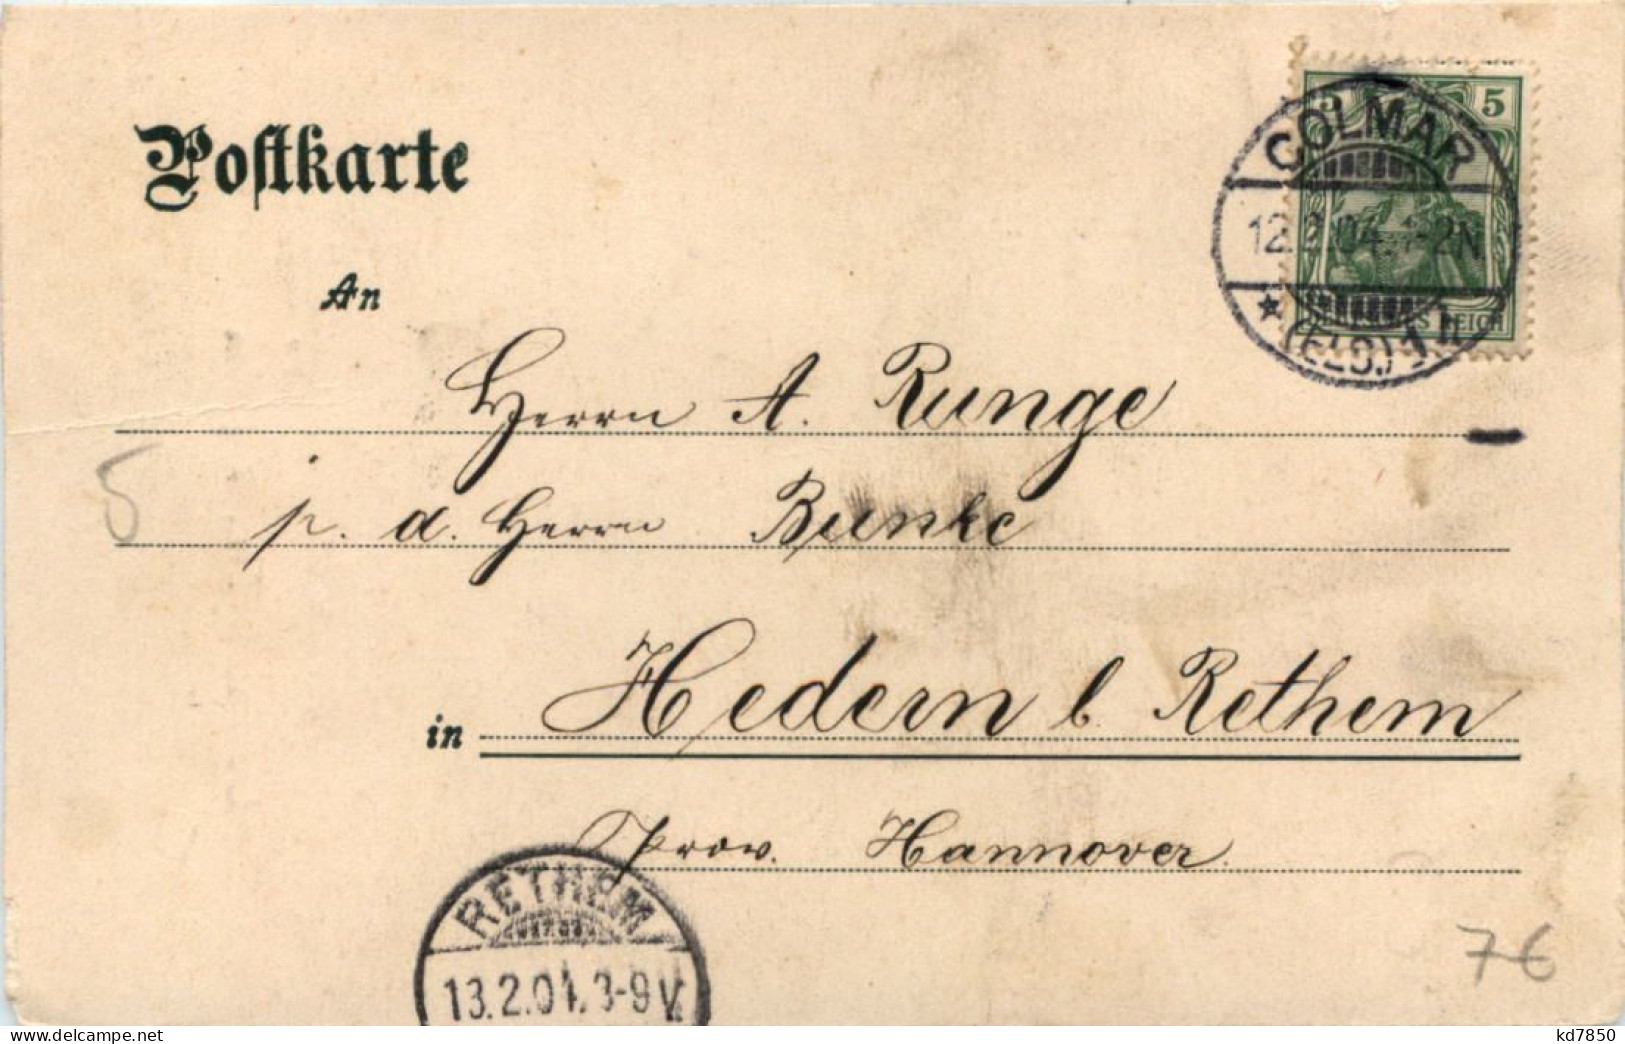 Postkarte
5
COLMAR
12.2.04. 1-2N
* (ELS.) 1
REICH
An
Herrn A. Runge
p. d. Herrn Bunke
5
in Hedern b. Rethem
Prov. Hannover.
RETHEM
13.2.04. 8-9V.
76
www.delcampe.net
kd7850